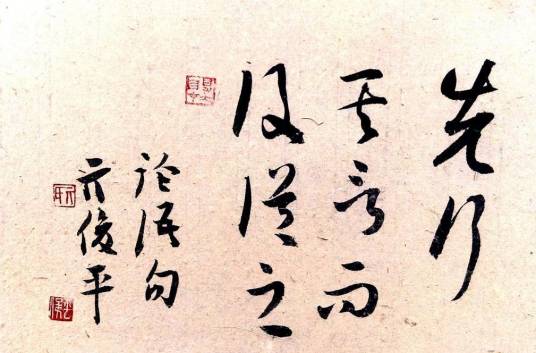 先行
其言而
後從之
论语句
亓俊平